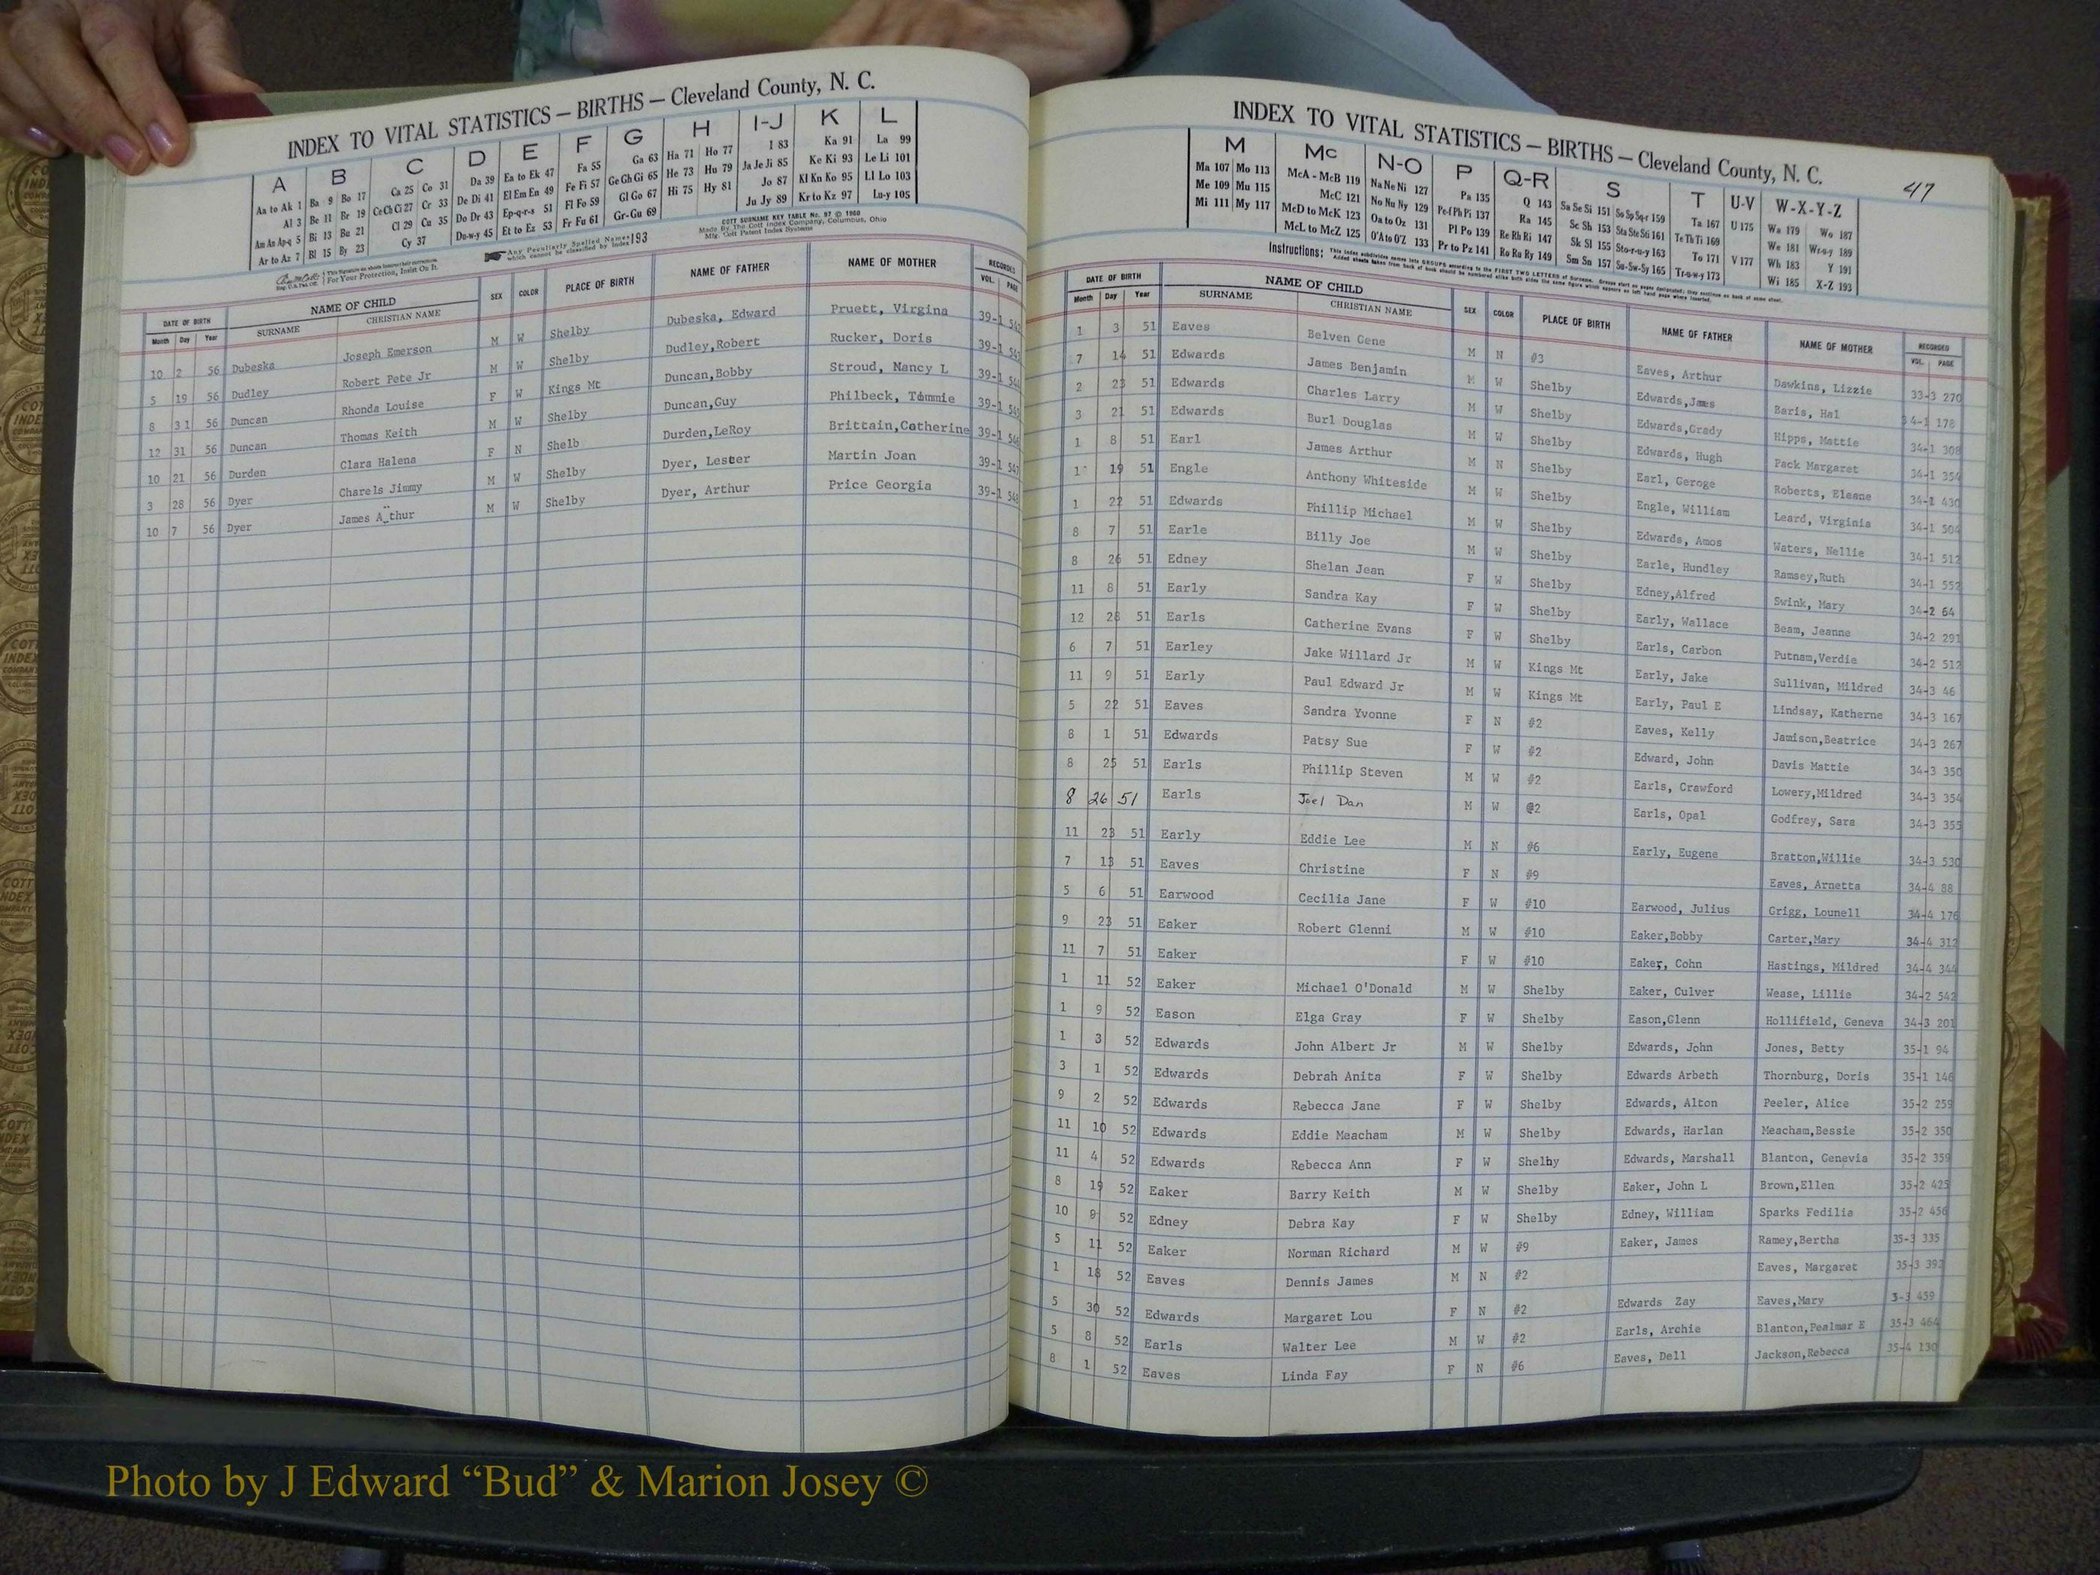 INDEX TO VITAL STATISTICS — BIRTHS — Cleveland County, N. C.
A B C D E F G H I-J K L
Aa to Ak 1 Ba 9 Bo 17 Ca 25 Co 31 Da 39 Ea to Ek 47 Fa 55 Ga 63 Ha 71 Ho 77 I 83 Ka 91 La 99
Al 3 Be 11 Br 19 Ce Ch Ci 27 Cr 33 De Di 41 El Em En 49 Fe Fi 57 Ge Gh Gi 65 He 73 Hu 79 Ja Je Ji 85 Ke Ki 93 Le Li 101
Am An Ap-q 5 Bi 13 Bu 21 Cl 29 Cu 35 Do Dr 43 Ep-q-r-s 51 Fl Fo 59 Gl Go 67 Hi 75 Hy 81 Jo 87 Kl Kn Ko 95 Ll Lo 103
Ar to Az 7 Bl 15 By 23 Cy 37 Du-w-y 45 Et to Ez 53 Fr Fu 61 Gr-Gu 69 Ju Jy 89 Kr to Kz 97 Lu-y 105
Any Peculiarly Spelled Names which cannot be classified by Index 193
COTT SURNAME KEY TABLE No. 97 © 1960
Made By The Cott Index Company, Columbus, Ohio
Mfg. Cott Patent Index Systems
For Your Protection, Insist On It.
DATE OF BIRTH NAME OF CHILD SEX COLOR PLACE OF BIRTH NAME OF FATHER NAME OF MOTHER RECORDED
Month Day Year SURNAME CHRISTIAN NAME VOL. PAGE
10 2 56 Dubeska Joseph Emerson M W Shelby Dubeska, Edward Pruett, Virgina 39-1 542
5 19 56 Dudley Robert Pete Jr M W Shelby Dudley,Robert Rucker, Doris 39-1 543
8 31 56 Duncan Rhonda Louise F W Kings Mt Duncan,Bobby Stroud, Nancy L 39-1 544
12 31 56 Duncan Thomas Keith M W Shelby Duncan,Guy Philbeck, Tommie 39-1 545
10 21 56 Durden Clara Halena F N Shelb Durden,LeRoy Brittain,Catherine 39-1 546
3 28 56 Dyer Charels Jimmy M W Shelby Dyer, Lester Martin Joan 39-1 547
10 7 56 Dyer James A thur M W Shelby Dyer, Arthur Price Georgia 39-1 548
INDEX TO VITAL STATISTICS — BIRTHS — Cleveland County, N. C.
47
M Mc N-O P Q-R S T U-V W-X-Y-Z
Ma 107 Mo 113 McA - McB 119 Na Ne Ni 127 Pa 135 Q 143 Sa Se Si 151 So Sp Sq-r 159 Ta 167 U 175 Wa 179 Wo 187
Me 109 Mu 115 McC 121 No Nu Ny 129 Pe-f Ph Pi 137 Ra 145 Sc Sh 153 Sta Ste Sti 161 Te Th Ti 169 We 181 Wr-u-y 189
Mi 111 My 117 McD to McK 123 Oa to Oz 131 Pl Po 139 Re Rh Ri 147 Sk Sl 155 Sto-r-u-y 163 To 171 V 177 Wh 183 Y 191
McL to McZ 125 O'A to O'Z 133 Pr to Pz 141 Ro Ru Ry 149 Sm Sn 157 Su-Sw-Sy 165 Tr-u-w-y 173 Wi 185 X-Z 193
Instructions: This index subdivides names into GROUPS according to the FIRST TWO LETTERS of Surname.
DATE OF BIRTH NAME OF CHILD SEX COLOR PLACE OF BIRTH NAME OF FATHER NAME OF MOTHER RECORDED
Month Day Year SURNAME CHRISTIAN NAME VOL. PAGE
1 3 51 Eaves Belven Gene M N #3 Eaves, Arthur Dawkins, Lizzie 33-3 270
7 14 51 Edwards James Benjamin M W Shelby Edwards,James Baris, Hal 34-1 178
2 23 51 Edwards Charles Larry M W Shelby Edwards,Grady Hipps, Mattie 34-1 308
3 21 51 Edwards Burl Douglas M W Shelby Edwards, Hugh Pack Margaret 34-1 354
1 8 51 Earl James Arthur M N Shelby Earl, Geroge Roberts, Eleane 34-1 430
1 19 51 Engle Anthony Whiteside M W Shelby Engle, William Leard, Virginia 34-1 504
1 22 51 Edwards Phillip Michael M W Shelby Edwards, Amos Waters, Nellie 34-1 512
8 7 51 Earle Billy Joe M W Shelby Earle, Hundley Ramsey,Ruth 34-1 552
8 26 51 Edney Shelan Jean F W Shelby Edney,Alfred Swink, Mary 34-2 64
11 8 51 Early Sandra Kay F W Shelby Early, Wallace Beam, Jeanne 34-2 291
12 28 51 Earls Catherine Evans F W Shelby Earls, Carbon Putnam,Verdie 34-2 512
6 7 51 Earley Jake Willard Jr M W Kings Mt Early, Jake Sullivan, Mildred 34-3 46
11 9 51 Early Paul Edward Jr M W Kings Mt Early, Paul E Lindsay, Katherne 34-3 167
5 22 51 Eaves Sandra Yvonne F N #2 Eaves, Kelly Jamison,Beatrice 34-3 267
8 1 51 Edwards Patsy Sue F W #2 Edward, John Davis Mattie 34-3 350
8 25 51 Earls Phillip Steven M W #2 Earls, Crawford Lowery,Mildred 34-3 354
8 26 51 Earls Joel Dan M W @2 Earls, Opal Godfrey, Sara 34-3 355
11 23 51 Early Eddie Lee M N #6 Early, Eugene Bratton,Willie 34-3 530
7 13 51 Eaves Christine F N #9 Eaves, Arnetta 34-4 88
5 6 51 Earwood Cecilia Jane F W #10 Earwood, Julius Grigg, Lounell 34-4 176
9 23 51 Eaker Robert Glenni M W #10 Eaker,Bobby Carter,Mary 34-4 312
11 7 51 Eaker F W #10 Eaker, Cohn Hastings, Mildred 34-4 344
1 11 52 Eaker Michael O'Donald M W Shelby Eaker, Culver Wease, Lillie 34-2 542
1 9 52 Eason Elga Gray F W Shelby Eason,Glenn Hollifield, Geneva 34-3 201
1 3 52 Edwards John Albert Jr M W Shelby Edwards, John Jones, Betty 35-1 94
3 1 52 Edwards Debrah Anita F W Shelby Edwards Arbeth Thornburg, Doris 35-1 146
9 2 52 Edwards Rebecca Jane F W Shelby Edwards, Alton Peeler, Alice 35-2 259
11 10 52 Edwards Eddie Meacham M W Shelby Edwards, Harlan Meacham,Bessie 35-2 350
11 4 52 Edwards Rebecca Ann F W Shelby Edwards, Marshall Blanton, Genevia 35-2 359
8 19 52 Eaker Barry Keith M W Shelby Eaker, John L Brown,Ellen 35-2 425
10 9 52 Edney Debra Kay F W Shelby Edney, William Sparks Fedilia 35-2 456
5 11 52 Eaker Norman Richard M W #9 Eaker, James Ramey,Bertha 35-3 335
1 18 52 Eaves Dennis James M N #2 Eaves, Margaret 35-3 393
5 30 52 Edwards Margaret Lou F N #2 Edwards Zay Eaves,Mary 3-3 459
5 8 52 Earls Walter Lee M W #2 Earls, Archie Blanton,Pealmar E 35-3 464
8 1 52 Eaves Linda Fay F N #6 Eaves, Dell Jackson,Rebecca 35-4 130
Photo by J Edward “Bud” & Marion Josey ©